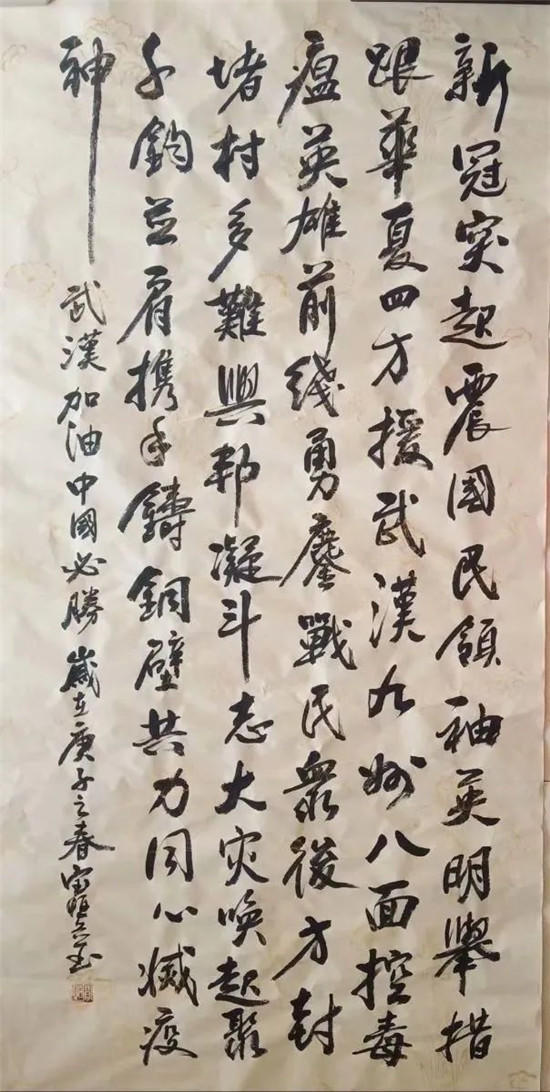 新冠突起震國民領袖英明舉措
跟華夏四方援武漢九州八面控毒
瘟英雄前綫勇鏖戰民衆後方封
堵村多難興邦凝斗志大灾喚起聚
千鈞並肩携手鑄銅壁共力同心滅疫
神
武漢加油中國必勝歲在庚子之春